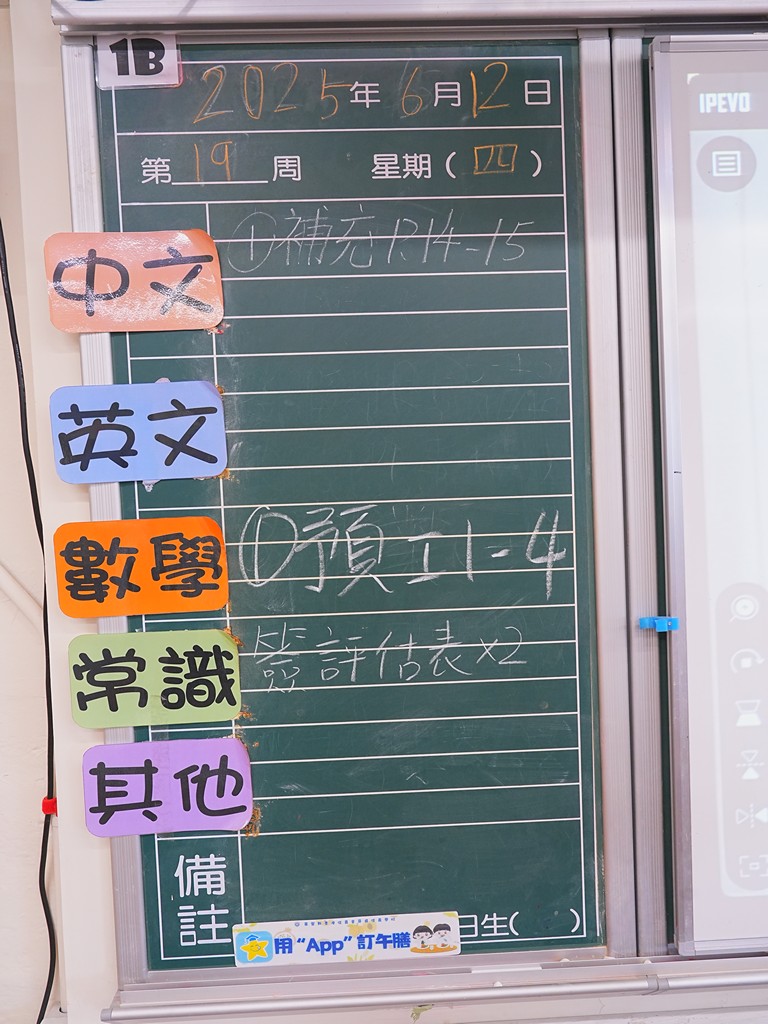 1B
2025年6月12日
第19周 星期(四)
中文 ①補充P.14-15
英文
數學 ①預工1-4
常識 簽評估表×2
其他
備註
日生( )
用“App”訂午膳
IPEVO